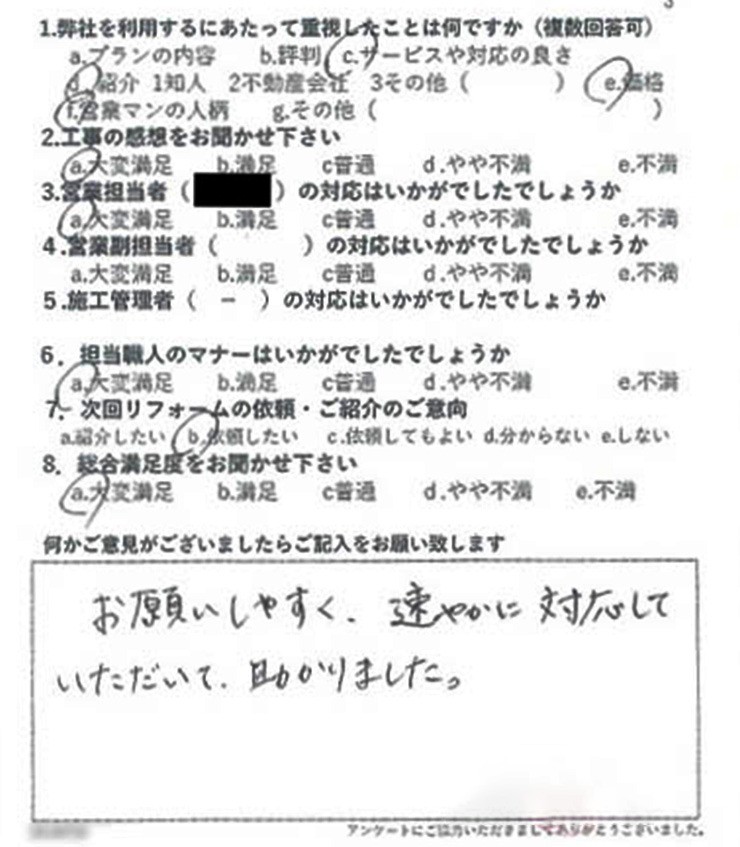 1.弊社を利用するにあたって重視したことは何ですか（複数回答可）
a.プランの内容 b.評判 c.サービスや対応の良さ
d.紹介 1知人 2不動産会社 3その他（ ） e.価格
f.営業マンの人柄 g.その他（ ）
2.工事の感想をお聞かせ下さい
a.大変満足 b.満足 c普通 d.やや不満 e.不満
3.営業担当者（ ）の対応はいかがでしたでしょうか
a.大変満足 b.満足 c普通 d.やや不満 e.不満
4.営業副担当者（ ）の対応はいかがでしたでしょうか
a.大変満足 b.満足 c普通 d.やや不満 e.不満
5.施工管理者（ － ）の対応はいかがでしたでしょうか
6．担当職人のマナーはいかがでしたでしょうか
a.大変満足 b.満足 c普通 d.やや不満 e.不満
7．次回リフォームの依頼・ご紹介のご意向
a.紹介したい b.依頼したい c.依頼してもよい d.分からない e.しない
8．総合満足度をお聞かせ下さい
a.大変満足 b.満足 c普通 d.やや不満 e.不満
何かご意見がございましたらご記入をお願い致します
お願いしやすく、速やかに対応して
いただいて、助かりました。
アンケートにご協力いただきましてありがとうございました。